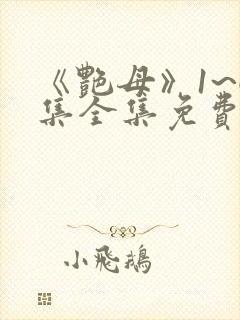 《艷母》1~
集全集免費
小飛鵝